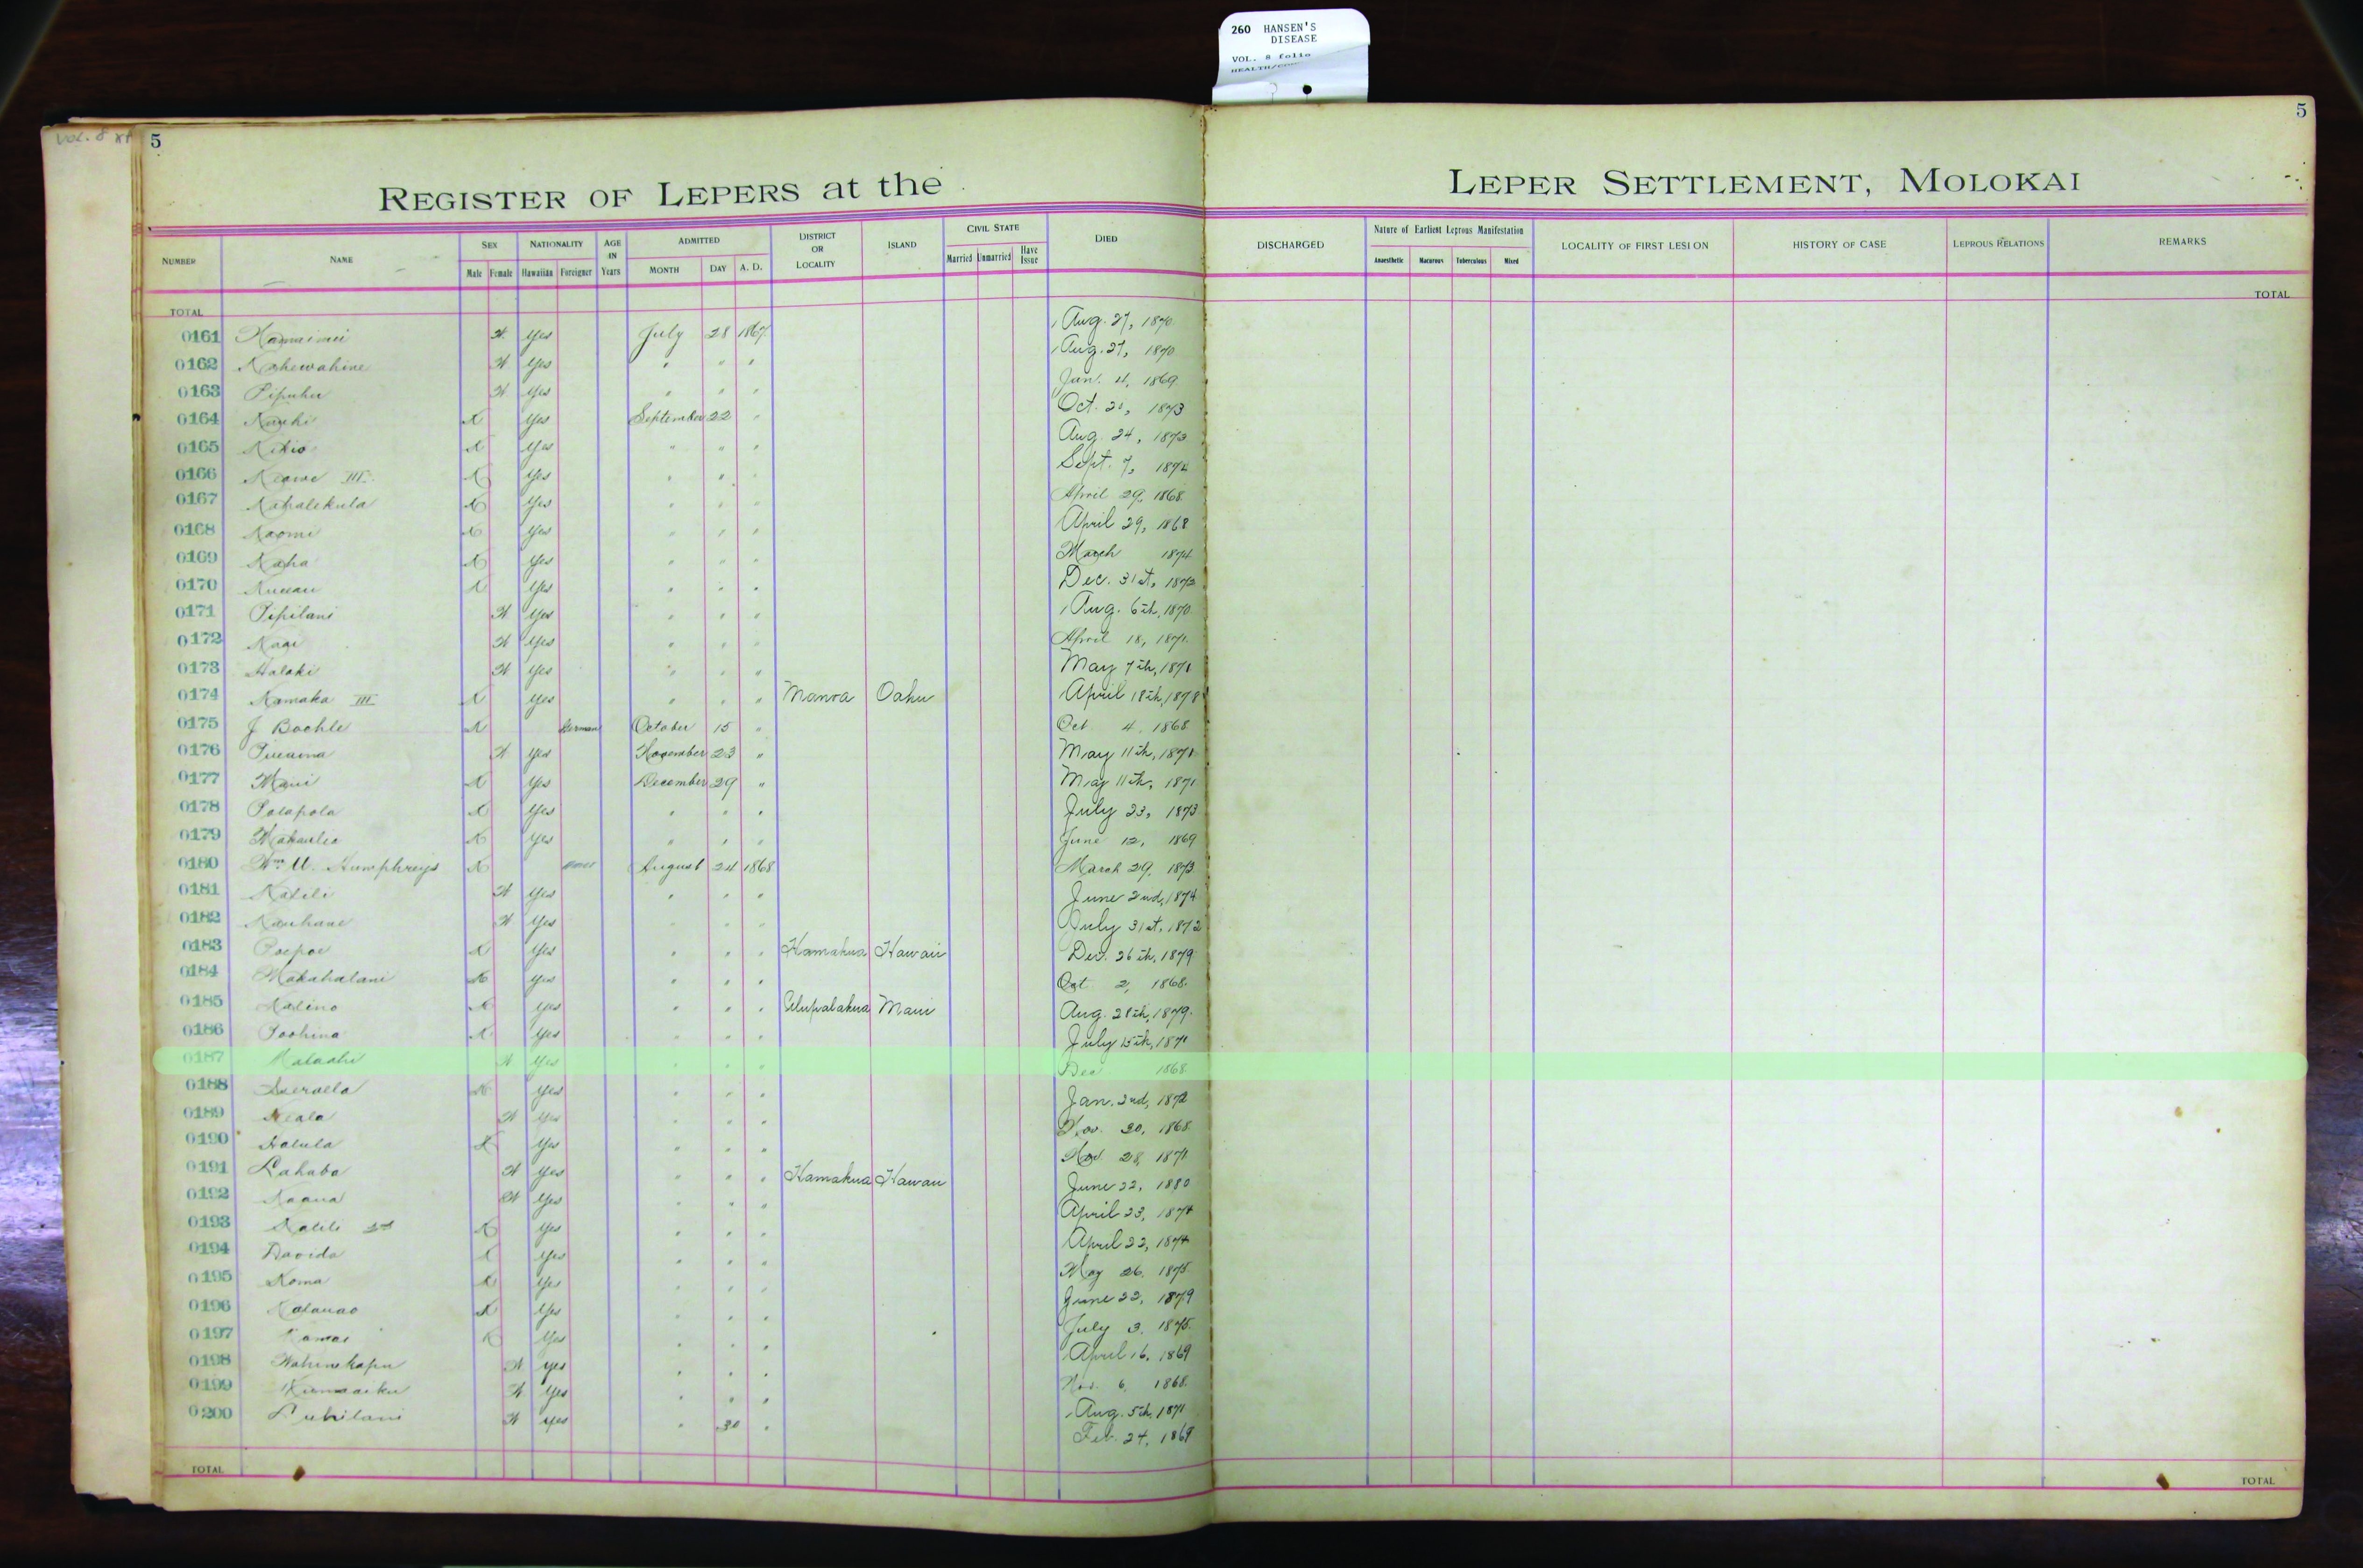 260 HANSEN'S
DISEASE
VOL. 8 folio
VOL. 8
5
5
REGISTER OF LEPERS at the LEPER SETTLEMENT, MOLOKAI
NUMBER NAME SEX Male Female NATIONALITY Hawaiian Foreigner AGE IN Years ADMITTED MONTH DAY A. D. DISTRICT OR LOCALITY ISLAND CIVIL STATE Married Unmarried Have Issue DIED DISCHARGED Nature of Earliest Leprous Manifestation Anaesthetic Macurous Tuberculous Mixed LOCALITY OF FIRST LESION HISTORY OF CASE LEPROUS RELATIONS REMARKS
TOTAL TOTAL
0161 yes July 28 1867 Aug. 27, 1870
0162 Kahewahine yes " " " Aug. 27, 1870
0163 Pipuhu yes " " " Jan. 4, 1869
0164 yes September 22 " Oct. 21, 1873
0165 Kikio yes " " " Aug. 24, 1873
0166 Keawe III yes " " " Sept. 7, 1874
0167 Kahalekula yes " " " April 29, 1868
0168 Kaomi yes " " " April 29, 1868
0169 Kaha yes " " " March 1874
0170 yes " " " Dec. 31st, 1873
0171 Pipilani yes " " " Aug. 6th, 1870
0172 yes " " " April 18, 1871
0173 Halaki yes " " " May 7th, 1871
0174 Kamaka III yes " " " Manoa Oahu April 18th, 1878
0175 J Boehle German October 15 " Oct 4, 1868
0176 yes November 23 " May 11th, 1871
0177 Maui yes December 29 " May 11th, 1871
0178 Polapola yes " " " July 23, 1873
0179 Makaulia yes " " " June 12, 1869
0180 Wm. Humphreys August 24 1868 March 29, 1873
0181 Kalili yes " " " June 2nd, 1874
0182 Kauhane yes " " " July 31st, 1872
0183 Poepoe yes " " " Hamakua Hawaii Dec. 26th, 1879
0184 Makahalani yes " " " Oct 2, 1868
0185 Kalino yes " " " Ulupalakua Maui Aug. 28th, 1879
0186 Poohina yes " " " July 15th, 1871
0187 yes " " " Dec 1868
0188 yes " " " Jan. 2nd, 1872
0189 Keala yes " " " Nov. 30, 1868
0190 Halula yes " " " Nov. 28, 1871
0191 Lahaba yes " " " Hamakua Hawaii June 22, 1880
0192 Kaaua yes " " " April 23, 1874
0193 Kalili 2nd yes " " " April 22, 1874
0194 Davida yes " " " May 26, 1875
0195 Koma yes " " " June 22, 1879
0196 Kalauao yes " " " July 3, 1875
0197 Kamai yes " " " April 16, 1869
0198 Wahinekapu yes " " " Nov. 6, 1868
0199 yes " " " Aug. 5th, 1871
0200 Luhilani yes " 30 " Feb. 24, 1869
TOTAL TOTAL